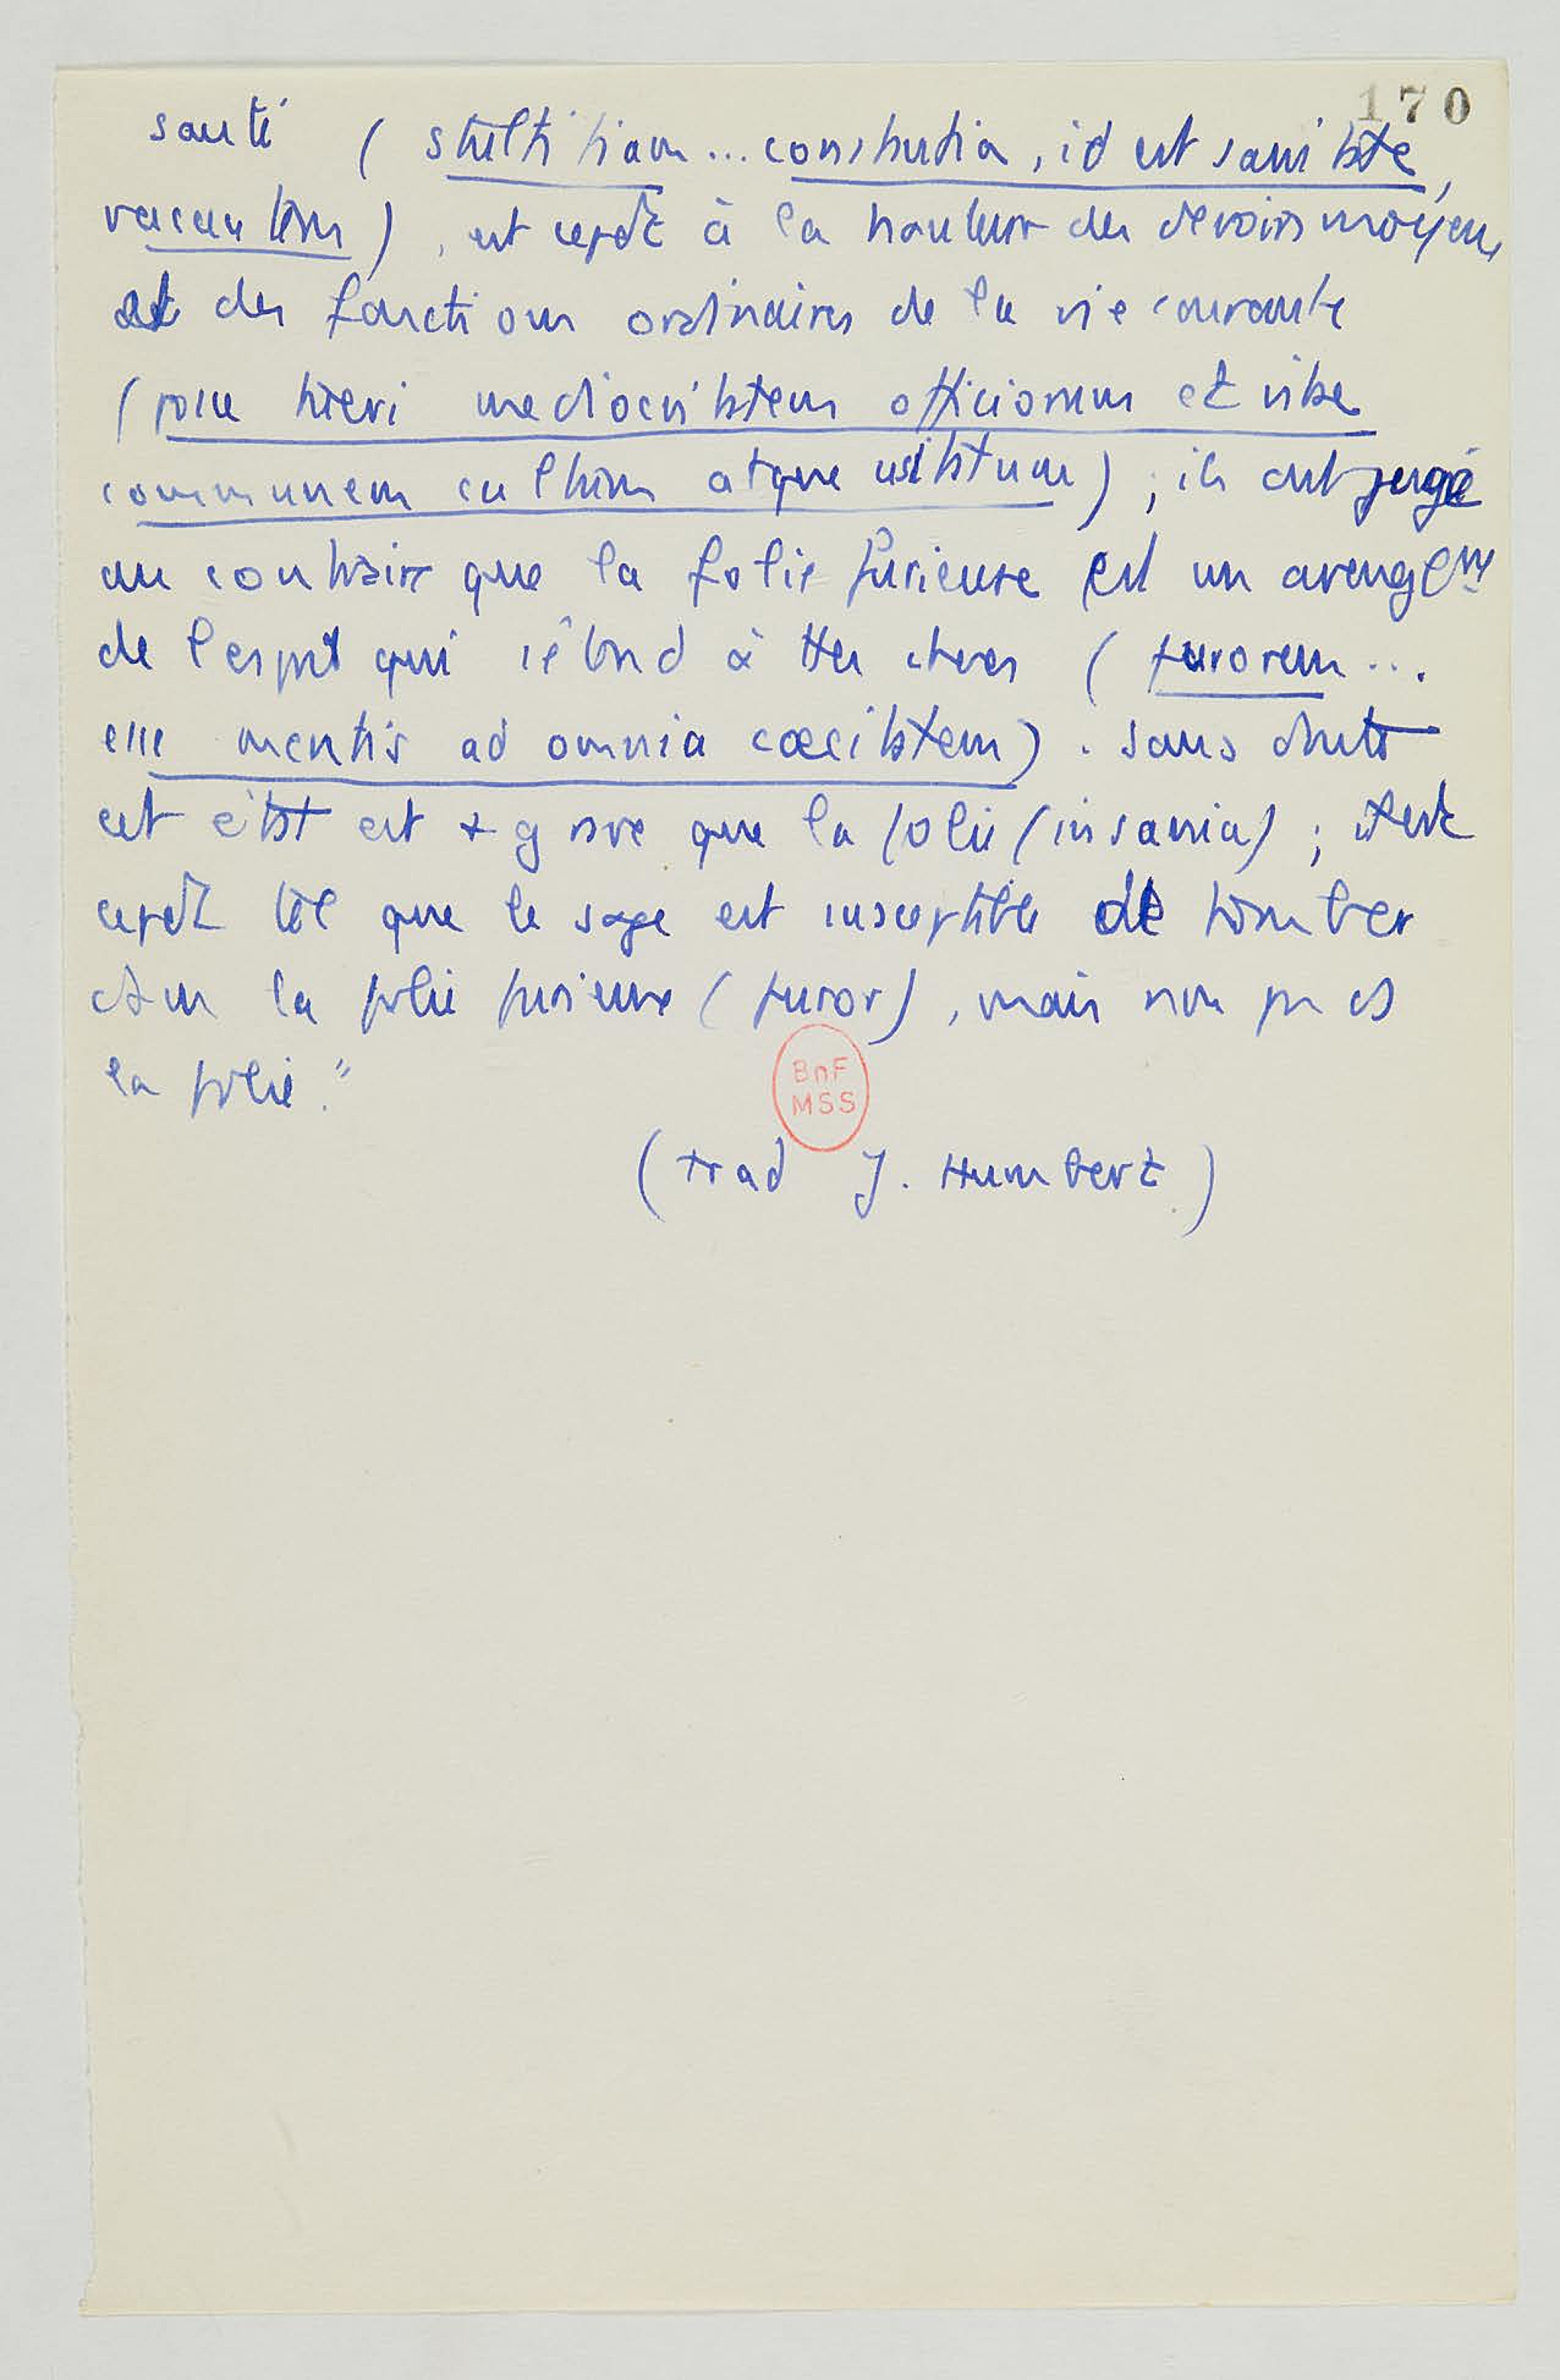 170
santé ( stultitiam ... constantia, id est sanitate,
vacantem ), est cepdt à la hauteur des devoirs moyens
et des fonctions ordinaires de la vie courante
( posse tueri mediocritatem officiorum et vitae
communem cultum atque usitatum ) ; ils ont jugé
au contraire que la folie furieuse est un aveuglemt
de l'esprit qui s'étend à ttes choses ( furorem ...
esse mentis ad omnia caecitatem ) . Sans doute
cet état est + grave que la folie (insania) ; il est
cepdt tel que le sage est susceptible de tomber
dans la folie furieuse ( furor ) , mais non pas ds
la folie. "
BnF
MSS
( trad J. Humbert )